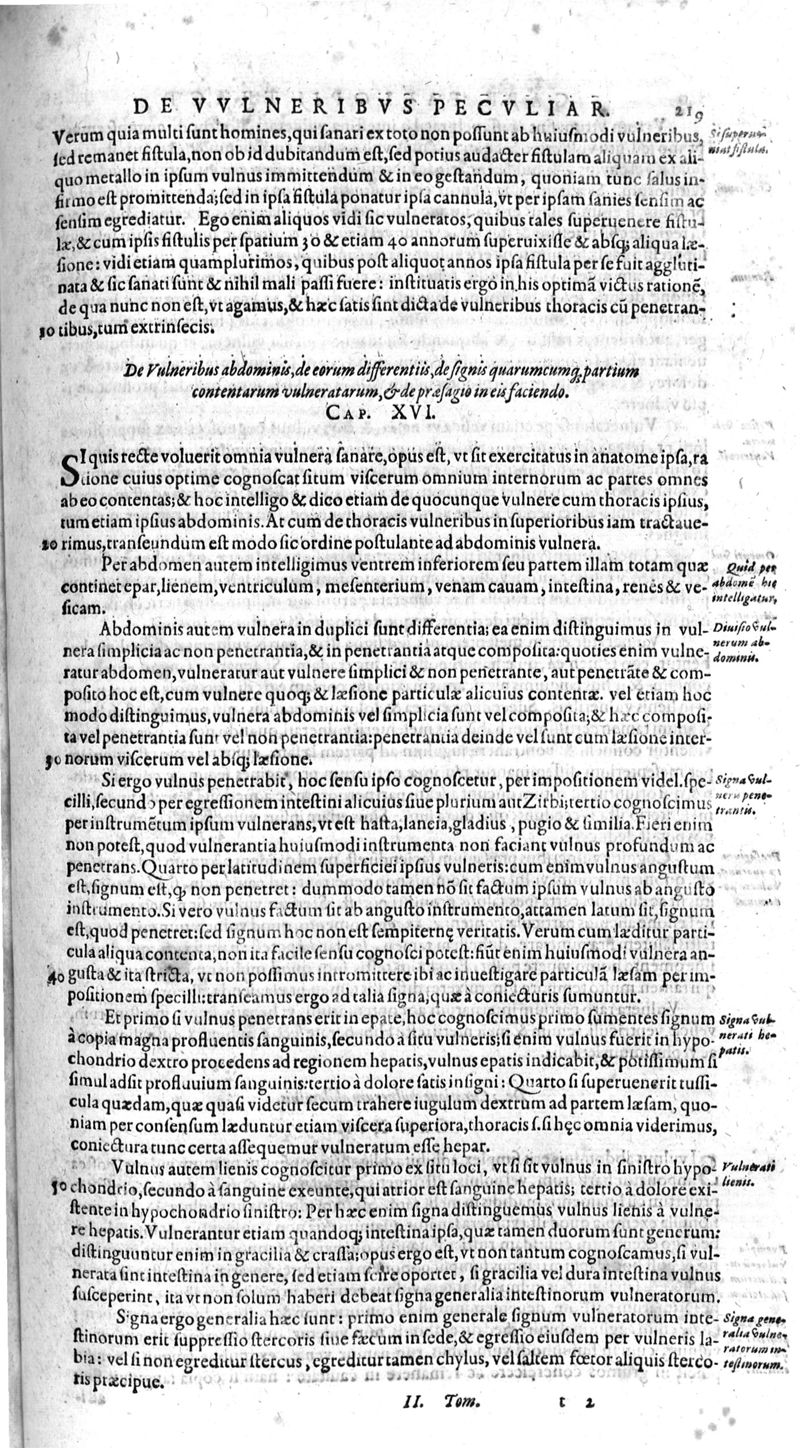 DE VVLNERIBVS PECVLIAR. 219
Verum quia multi sunt homines, qui sanari ex toto non possunt ab huiusmodi vulneribus,
Si superue-
sed remanet fistula, non ob id dubitandum est, sed potius audacter fistulam aliquam ex ali-
niat fistula.
quo metallo in ipsum vulnus immittendum & in eo gestandum, quoniam tunc salus in-
firmo est promittenda; sed in ipsa fistula ponatur ipsa cannula, vt per ipsam sanies sensim ac
sensim egrediatur. Ego enim aliquos vidi sic vulneratos, quibus tales superuenere fistu-
læ, & cum ipsis fistulis per spatium 30 & etiam 40 annorum superuixisse & absq; aliqua læ-
sione: vidi etiam quamplurimos, quibus post aliquot annos ipsa fistula per se fuit aggluti-
nata & sic sanati sunt & nihil mali passi fuere: instituatis ergo in his optimā victus rationē,
de qua nunc non est, vt agamus, & hæc satis sint dicta de vulneribus thoracis cū penetran-
10 tibus, tum extrinsecis.
De Vulneribus abdominis, de eorum differentiis, de signis quarumcumq; partium
contentarum vulneratarum, & de præsagio in eis faciendo.
CAP. XVI.
SI quis recte voluerit omnia vulnera sanare, opus est, vt sit exercitatus in anatome ipsa, ra
tione cuius optime cognoscat situm viscerum omnium internorum ac partes omnes
ab eo contentas; & hoc intelligo & dico etiam de quocunque vulnere cum thoracis ipsius,
tum etiam ipsius abdominis. At cum de thoracis vulneribus in superioribus iam tractaue-
20 rimus, transeundum est modo sic ordine postulante ad abdominis vulnera.
Per abdomen autem intelligimus ventrem inferiorem seu partem illam totam quæ
Quid per
continet epar, lienem, ventriculum, mesenterium, venam cauam, intestina, renes & ve-
abdomē hic
sicam.
intelligatur.
Abdominis autem vulnera in duplici sunt differentia; ea enim distinguimus in vul-
Diuisio vul-
nera simplicia ac non penetrantia, & in penetrantia atque composita: quoties enim vulne-
nerum ab-
ratur abdomen, vulneratur aut vulnere simplici & non penetrante, aut penetrāte & com-
dominis.
posito hoc est, cum vulnere quoq; & læsione particulæ alicuius contentæ. vel etiam hoc
modo distinguimus, vulnera abdominis vel simplicia sunt vel composita; & hæc composi-
ta vel penetrantia sunt vel non penetrantia: penetrantia deinde vel sunt cum læsione inter-
30 norum viscerum vel absq; læsione.
Si ergo vulnus penetrabit, hoc sensu ipso cognoscetur, per impositionem videl. spe-
Signa vul-
cilli, secundo per egressionem intestini alicuius siue plurium aut Zirbi; tertio cognoscimus
neris pene-
per instrumētum ipsum vulnerans, vt est hasta, lancia, gladius, pugio & similia. Fieri enim
trantis.
non potest, quod vulnerantia huiusmodi instrumenta non faciant vulnus profundum ac
penetrans. Quarto per latitudinem superficiei ipsius vulneris: cum enim vulnus angustum
est, signum est, q, non penetret: dummodo tamen nō sit factum ipsum vulnus ab angusto
instrumento. Si vero vulnus factum sit ab angusto instrumento, attamen latum sit, signum
est, quod penetret: sed signum hoc non est sempiternę veritatis. Verum cum læditur parti-
cula aliqua contenta, non ita facile sensu cognosci potest: fiūt enim huiusmodi vulnera an-
40 gusta & ita stricta, vt non possimus intromittere ibi ac inuestigare particulā læsam per im-
positionem specilli: transeamus ergo ad talia signa, quæ à coniecturis sumuntur.
Et primo si vulnus penetrans erit in epate, hoc cognoscimus primo sumentes signum
Signa vul-
à copia magna profluentis sanguinis, secundo à situ vulneris; si enim vulnus fuerit in hypo-
nerati he-
chondrio dextro procedens ad regionem hepatis, vulnus epatis indicabit, & potissimum si
patis.
simul adsit profluuium sanguinis: tertio à dolore satis insigni: Quarto si superuenerit tussi-
cula quædam, quæ quasi videtur secum trahere iugulum dextrum ad partem læsam, quo-
niam per consensum læduntur etiam viscera superiora, thoracis s. si hęc omnia viderimus,
coniectura tunc certa assequemur vulneratum esse hepar.
Vulnus autem lienis cognoscitur primo ex situ loci, vt si sit vulnus in sinistro hypo-
Vulnerati
50 chondrio, secundo à sanguine exeunte, qui atrior est sanguine hepatis; tertio à dolore exi-
lienis.
stente in hypochondrio sinistro: Per hæc enim signa distinguemus vulnus lienis à vulne-
re hepatis. Vulnerantur etiam quandoq; intestina ipsa, quæ tamen duorum sunt generum:
distinguuntur enim in gracilia & crassa; opus ergo est, vt non tantum cognoscamus, si vul-
nerata sint intestina in genere, sed etiam scire oportet, si gracilia vel dura intestina vulnus
susceperint, ita vt non solum haberi debeat signa generalia intestinorum vulneratorum.
Signa ergo generalia hæc sunt: primo enim generale signum vulneratorum inte-
Signa gene-
stinorum erit suppressio stercoris siue fæcum in sede, & egressio eiusdem per vulneris la-
ralia vulne-
ratorum in-
bia: vel si non egreditur stercus, egreditur tamen chylus, vel saltem fœtor aliquis sterco-
testinorum.
ris præcipue.
II. Tom. t 2